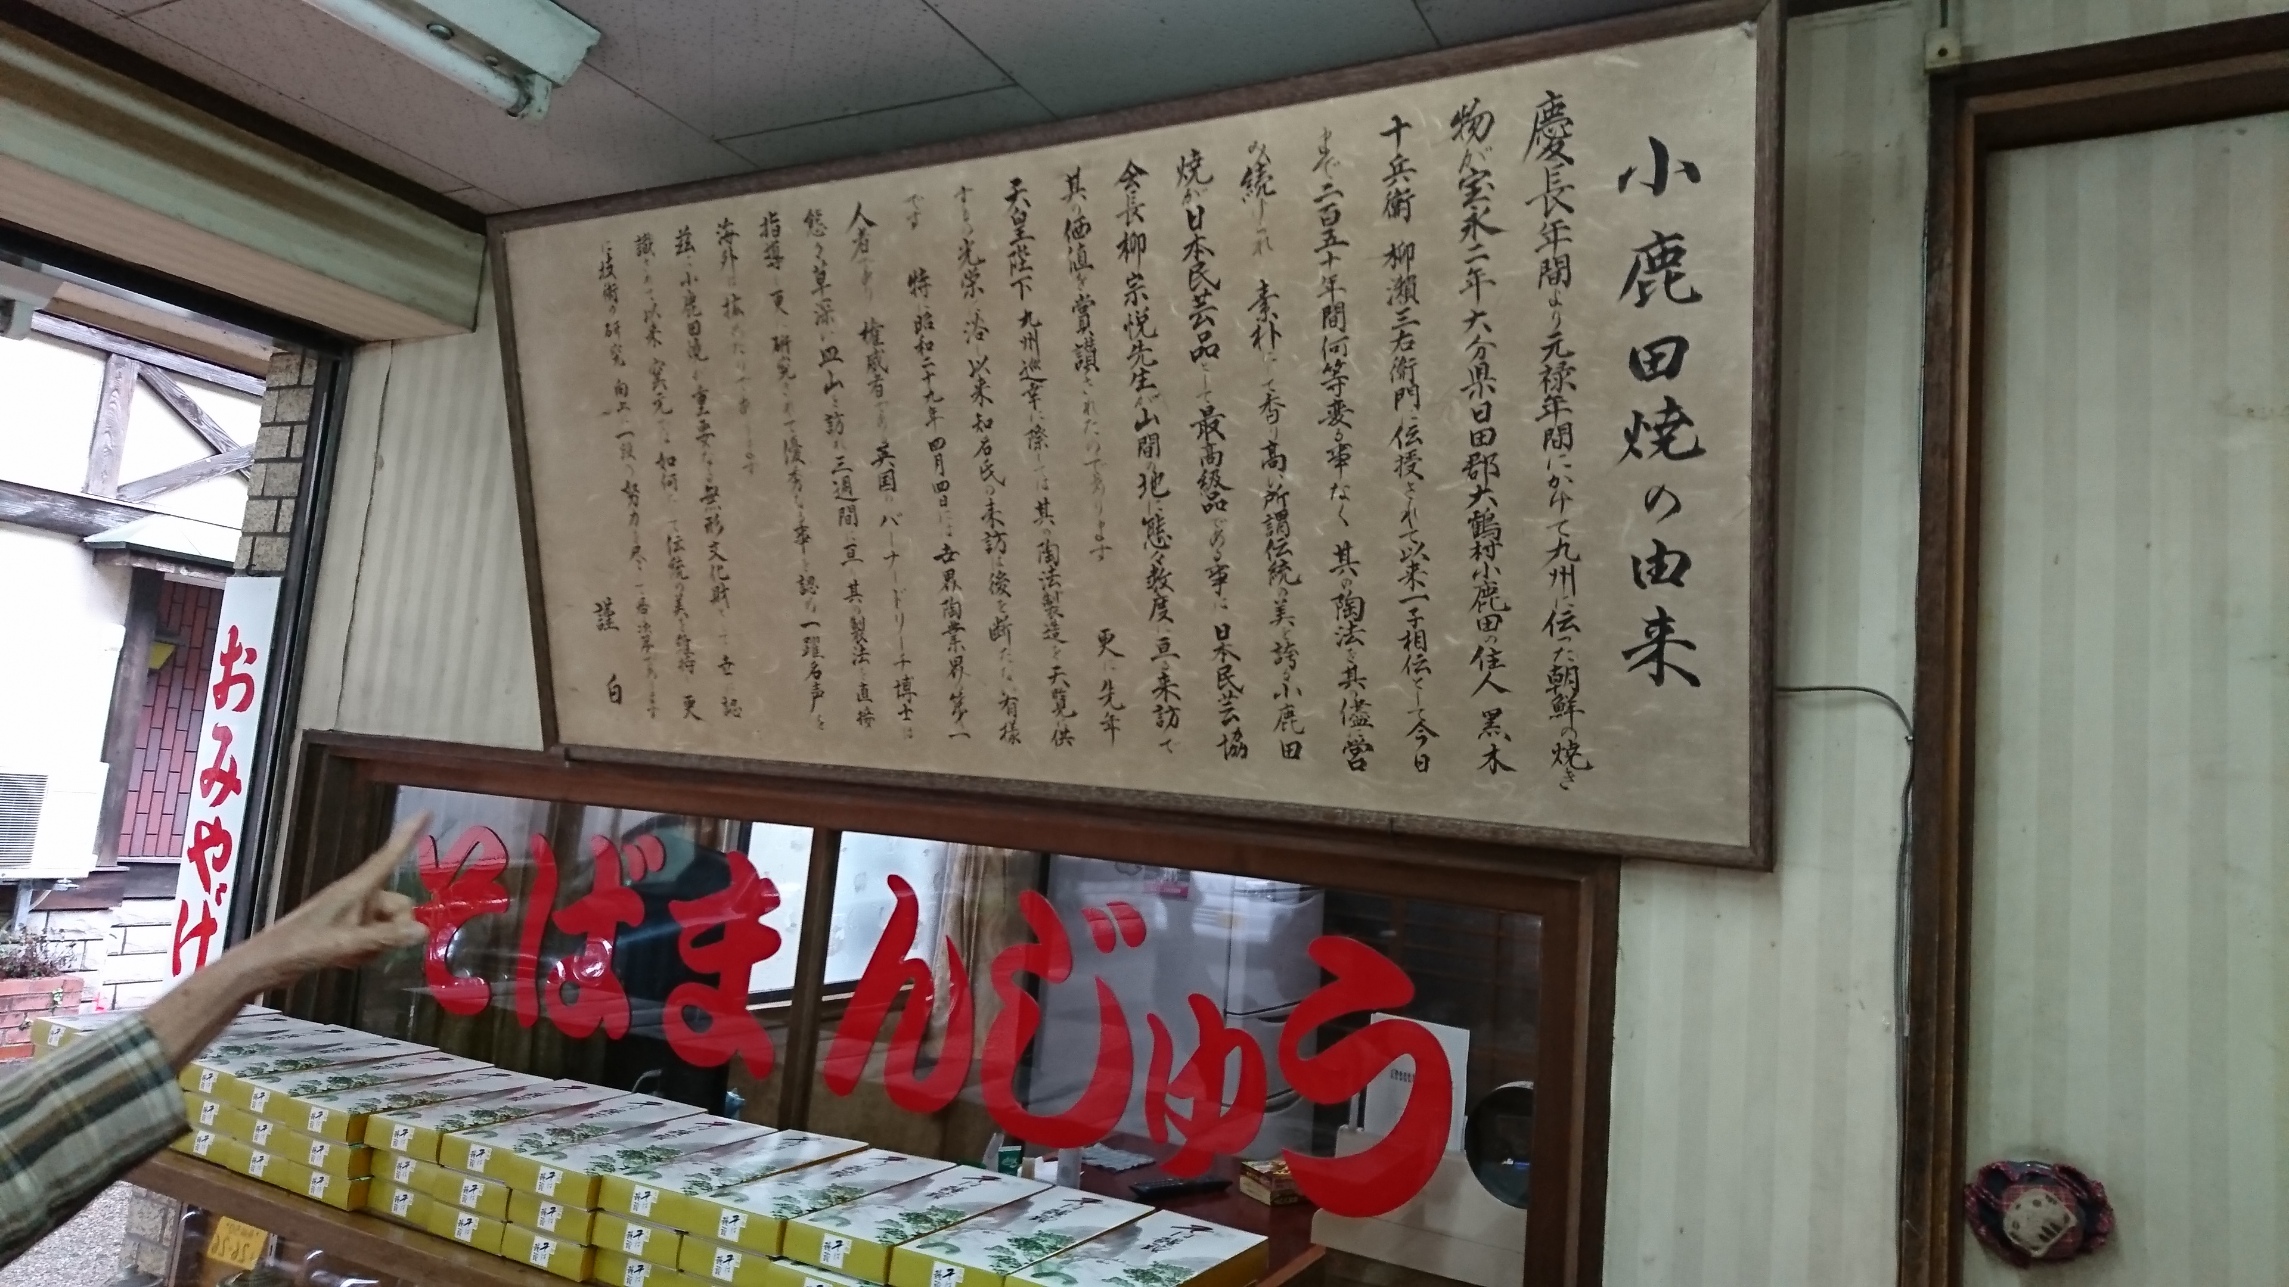 小鹿田焼の由来
慶長年間より元禄年間にかけて九州に伝った朝鮮の焼き
物が宝永二年大分県日田郡大鶴村小鹿田の住人 黒木
十兵衛 柳瀬三右衛門に伝授されて以来一子相伝として今日
まで二百五十年間何等変る事なく 其の陶法を其の儘営
み続けられ 素朴にして香り高い所謂伝統の美を誇る小鹿田
焼が日本民芸品として最高級品である事に日本民芸協
会長柳宗悦先生が山間の地に態々数度に亘る来訪で
其の価値を賞讃されたのであります 更に先年
天皇陛下九州巡幸に際しては其の陶法製造を天覧に供
する光栄に浴し以来知名氏の来訪は後を断たない有様
です 特に昭和二十九年四月四日には世界陶業界の第一
人者であり 権威者である英国のバーナードリーチ博士は
態々草深い皿山を訪れ三週間に亘り其の製法を直接
指導し更に研究されて優秀なる事を認め一躍名声を
海外に拡めたのであります
茲に小鹿田焼が重要なる無形文化財として世に認
識されて以来 窯元では如何にして伝統の美を維持し更
に技術の研究 向上に一段の努力を尽して居る次第であります
謹白
そばまんじゅう
おみやげ